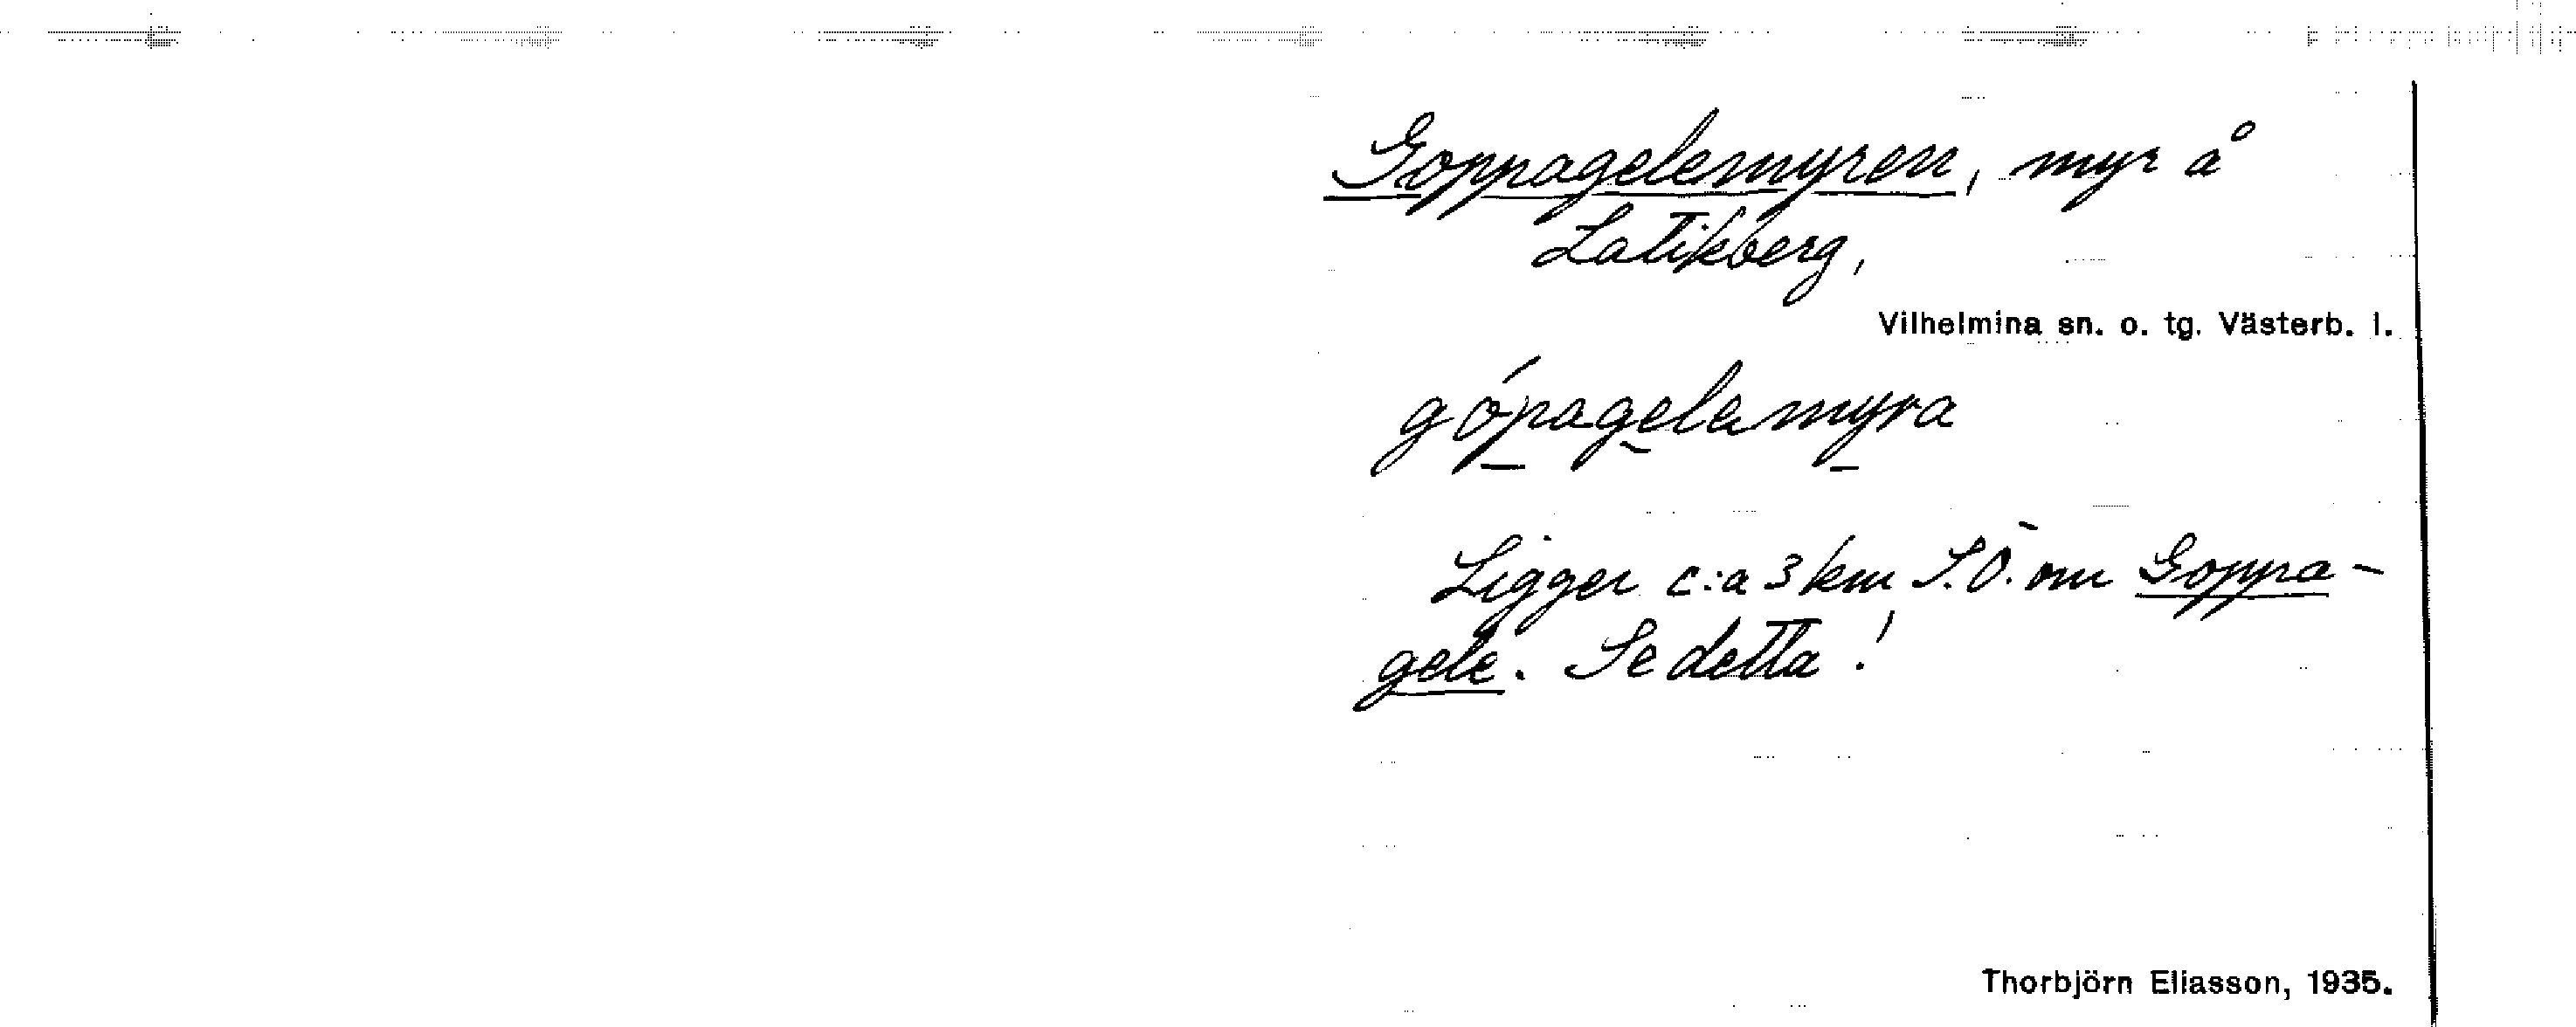 Goppagelemyren, myr å
Latikberg,
Vilhelmina sn. o. tg. Västerb. l.
gópagelamyra
Ligger c:a 3 km S.Ö. om Goppa-
gele. Se detta!
Thorbjörn Eliasson, 1935.